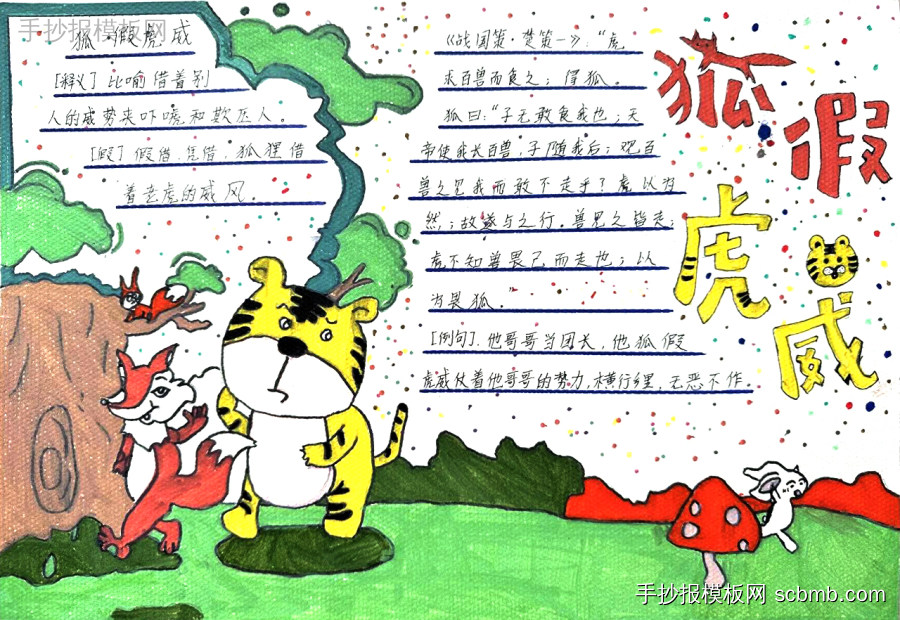 手抄报模板网
狐假虎威
[释义] 比喻借着别
人的威势来吓唬和欺压人。
[假] 假借、凭借。狐狸借
着老虎的威风。
《战国策·楚策一》:“虎
求百兽而食之;得狐。
狐曰:“子无敢食我也;天
帝使我长百兽,子随我后;观百
兽之见我而敢不走乎?虎以为
然;故遂与之行。兽见之皆走;
虎不知兽畏己而走也;以
为畏狐。”
[例句].他哥哥当团长,他狐假
虎威仗着他哥哥的势力,横行乡里,无恶不作。
狐假
虎威
手抄报模板网 scbmb.com